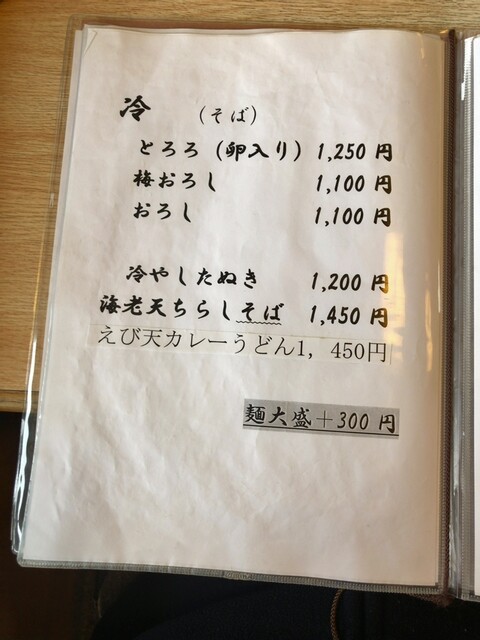 冷 (そば)
とろろ (卵入り) 1,250 円
梅おろし 1,100 円
おろし 1,100 円
冷やしたぬき 1,200 円
海老天ちらしそば 1,450 円
えび天カレーうどん1, 450円
麺大盛+300 円